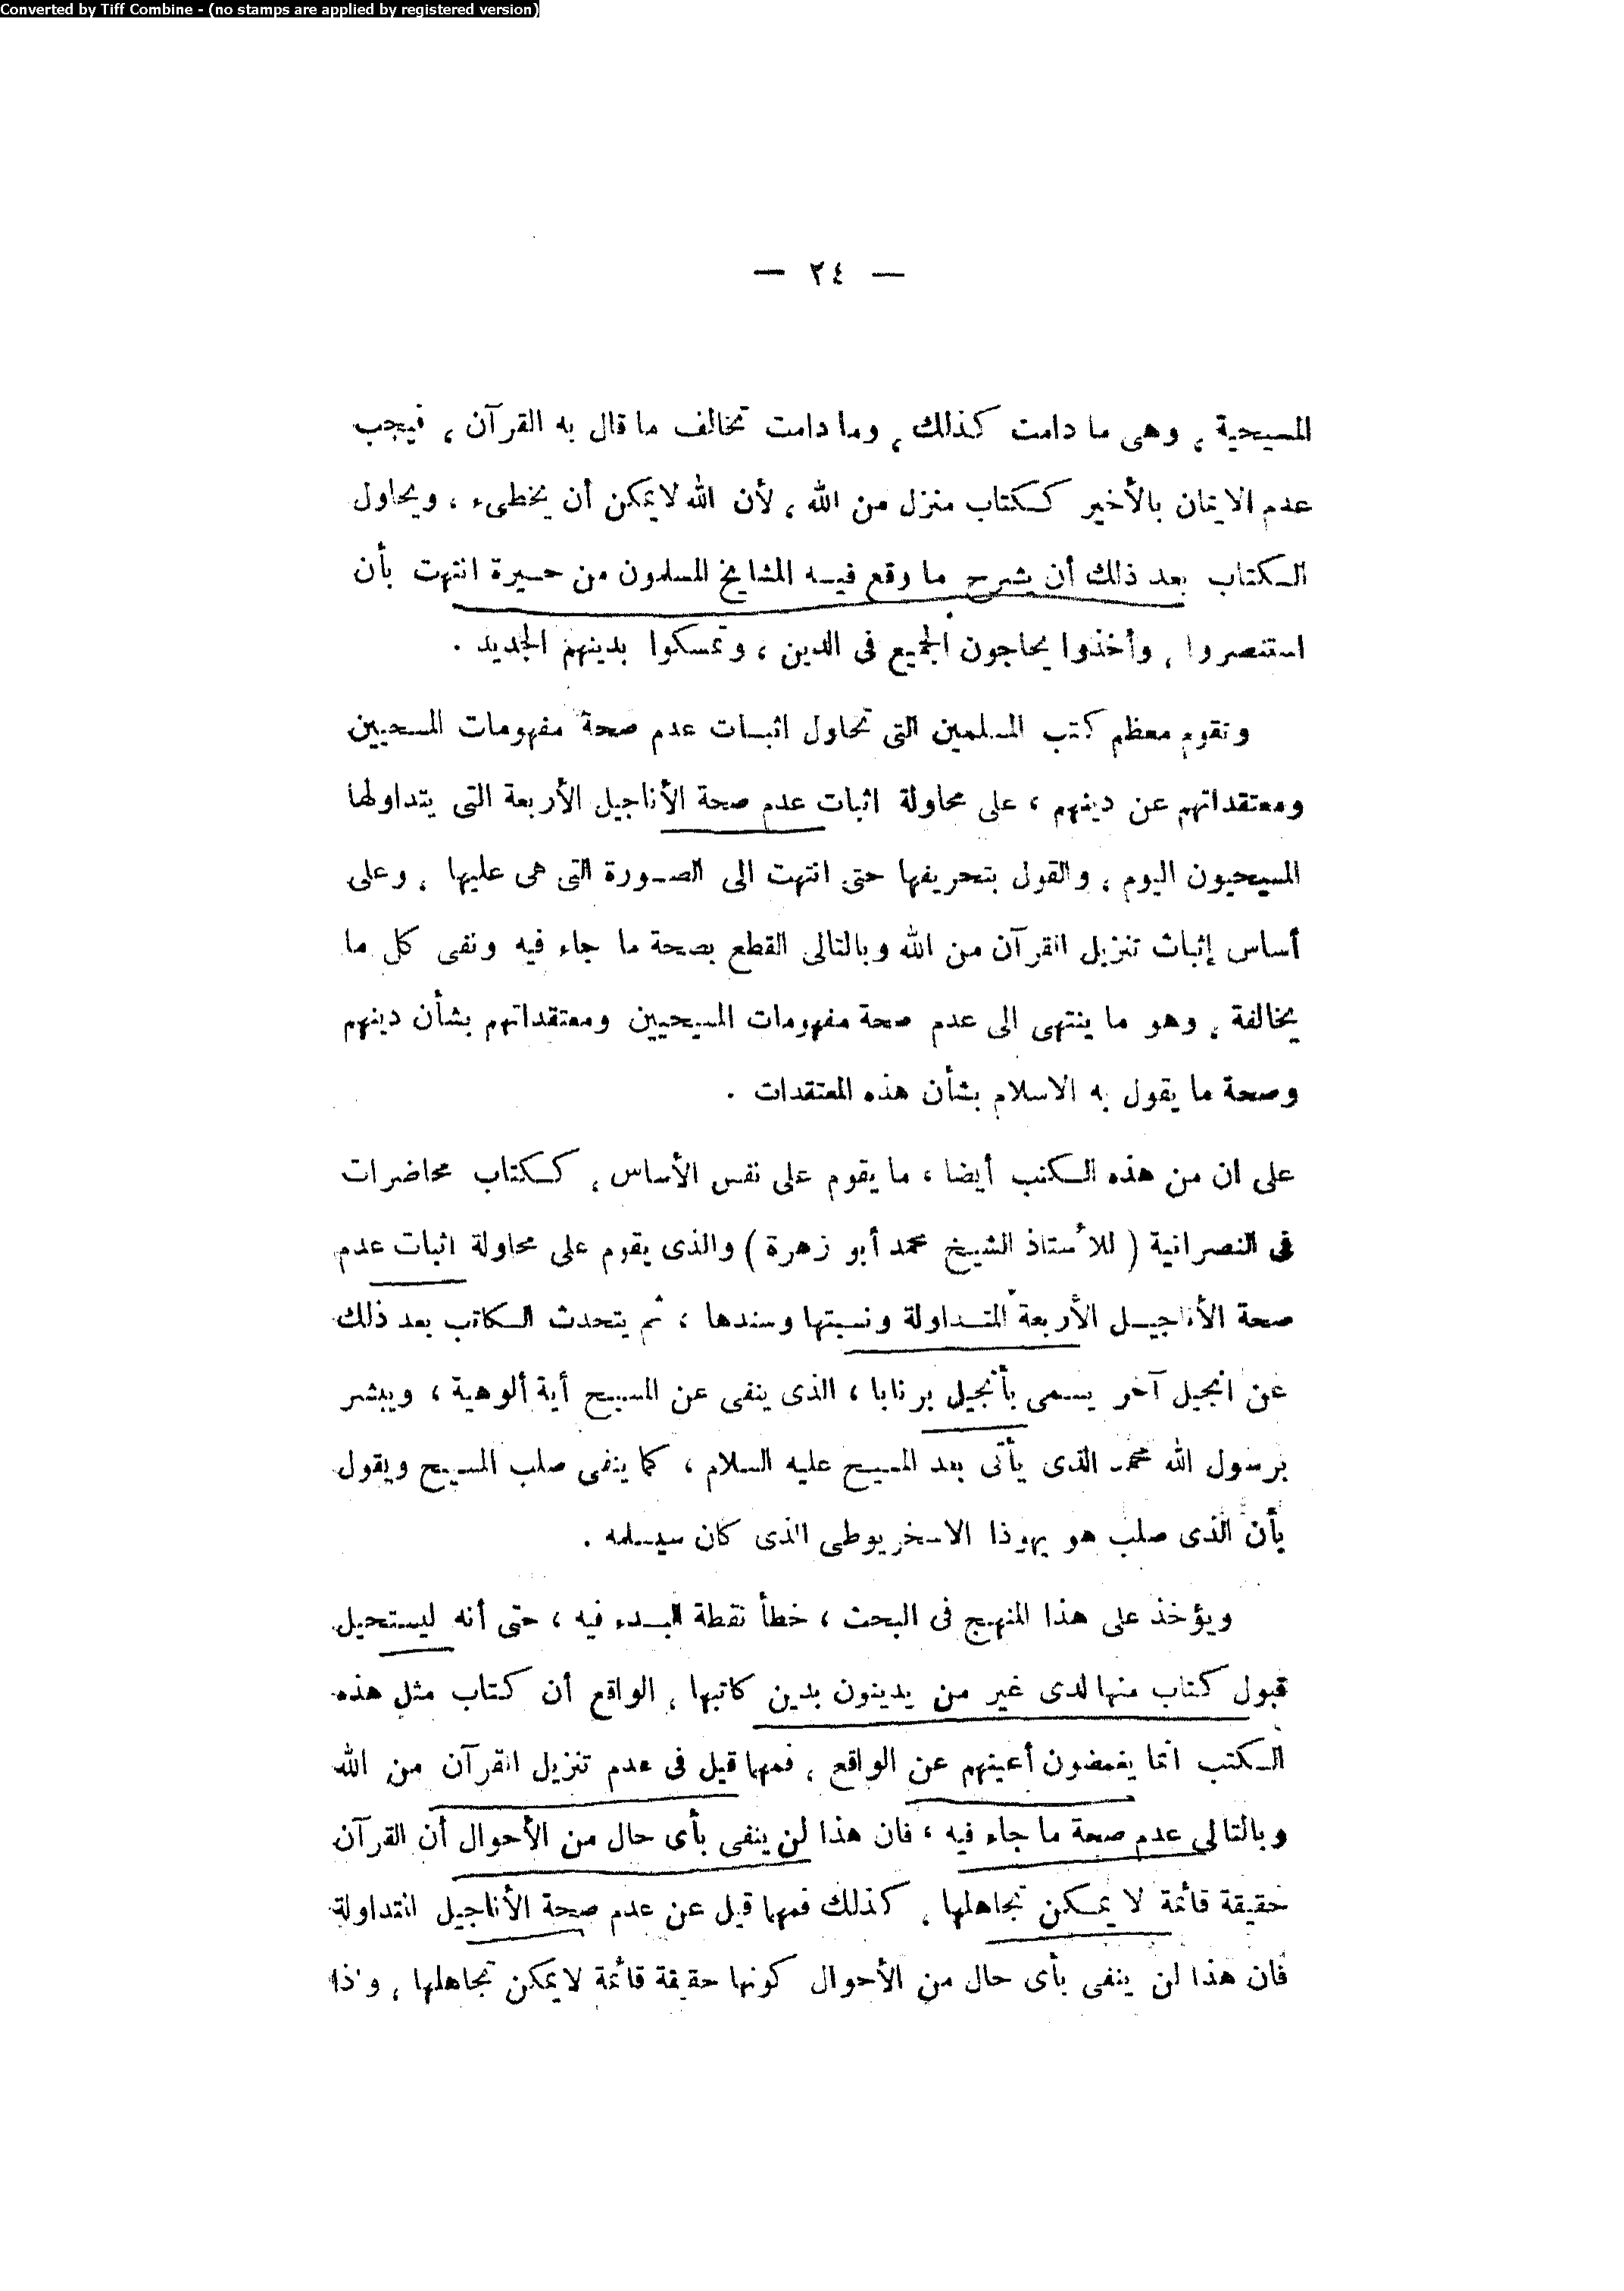 Converted by Tiff Combine - (no stamps are applied by registered version)
— ٢٤ —
المسيحية ، وهى ما دامت كذلك ، وما دامت تخالف ما قال به القرآن ، فيجب
عدم الايمان بالأخير ككتاب منزل من الله ، لأن الله لا يمكن أن يخطىء ، ويحاول
الكتاب بعد ذلك أن يشرح ما وقع فيه المشايخ المسلمون من حيرة انتهت بأن
استنصروا ، وأخذوا يحاجون الجميع فى الدين ، وتمسكوا بدينهم الجديد .
وتقوم معظم كتب المسلمين التى تحاول اثبات عدم صحة مفهومات المسحيين
ومعتقداتهم عن دينهم ، على محاولة اثبات عدم صحة الأناجيل الأربعة التى يتداولها
المسيحيون اليوم ، والقول بتحريفها حتى انتهت الى الصورة التى هى عليها ، وعلى
أساس إثبات تنزيل القرآن من الله وبالتالى القطع بصحة ما جاء فيه ونفى كل ما
يخالفة ، وهو ما ينتهى الى عدم صحة مفهومات المسيحيين ومعتقداتهم بشأن دينهم
وصحة ما يقول به الاسلام بشأن هذه المعتقدات .
على ان من هذه الكتب أيضا ، ما يقوم على نفس الأساس ، ككتاب محاضرات
فى النصرانية ( للأستاذ الشيخ محمد أبو زهرة ) والذى يقوم على محاولة اثبات عدم
صحة الأناجيل الأربعة المتداولة ونسبتها وسندها ، ثم يتحدث الكاتب بعد ذلك
عن انجيل آخر يسمى بأنجيل برنابا ، الذى ينفى عن المسيح أية ألوهية ، ويبشر
برسول الله محمد الذى يأتى بعد المسيح عليه السلام ، كما ينفى صلب المسيح ويقول
بأن الذى صلب هو يهوذا الاسخريوطى الذى كان سيسلمه .
ويؤخذ على هذا المنهج فى البحث ، خطأ نقطة البدء فيه ، حتى أنه ليستحيل
قبول كتاب منها لدى غير من يدينون بدين كاتبها ، الواقع أن كتاب مثل هذه
الكتب انما يغمضون أعينهم عن الواقع ، فمهما قيل فى عدم تنزيل القرآن من الله
وبالتالى عدم صحة ما جاء فيه ، فان هذا لن ينفى بأى حال من الأحوال أن القرآن
حقيقة قائمة لا يمكن تجاهلها ، كذلك فمهما قيل عن عدم صحة الأناجيل المتداولة
فان هذا لن ينفى بأى حال من الأحوال كونها حقيقة قائمة لا يمكن تجاهلها ،